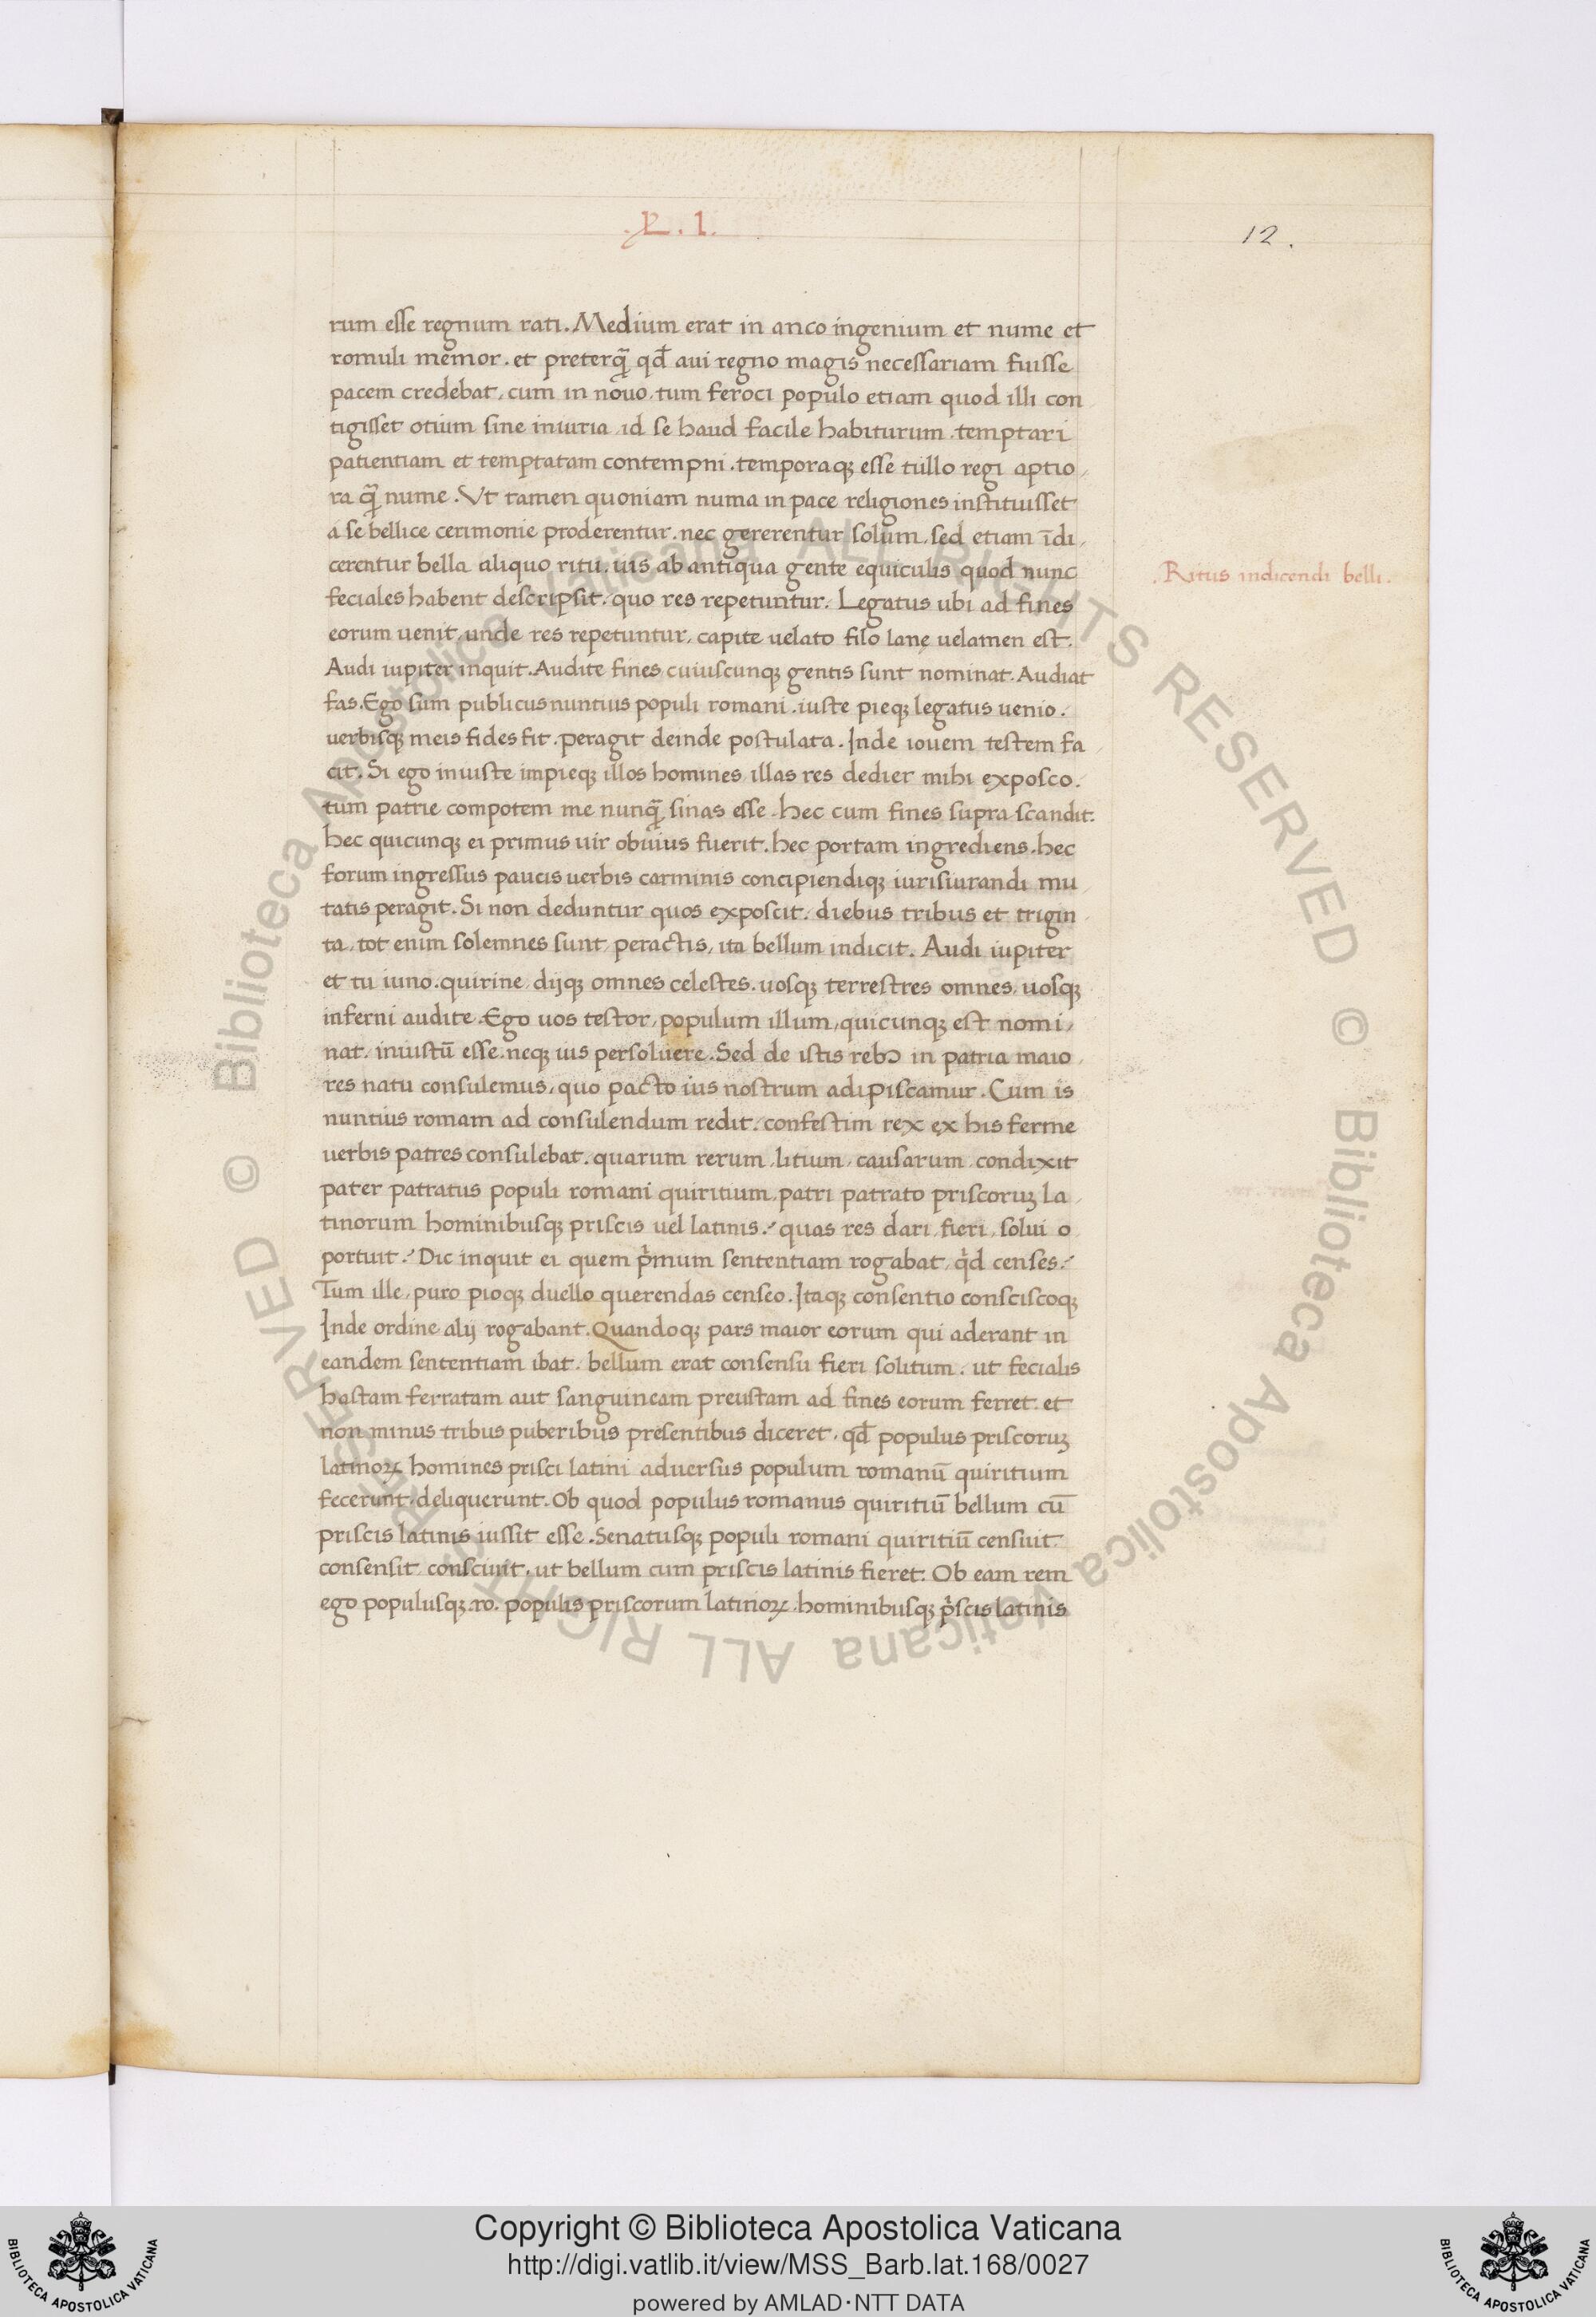 .L. 1.
12.
rum esse regnum rati. Medium erat in anco ingenium et nume et
romuli memor. et preterq̃ qđ aui regno magis necessariam fuisse
pacem credebat, cum in nouo, tum feroci populo etiam quod illi con
tigisset otium sine iniuria, id se haud facile habiturum. temptari
patientiam et temptatam contempni. temporaqꝫ esse tullo regi aptio
ra q̃ nume. Vt tamen quoniam numa in pace religiones instituisset
a se bellice cerimonie proderentur. nec gererentur solum, sed etiam īdi
cerentur bella aliquo ritu. ius ab antiqua gente equiculis quod nunc
Ritus indicendi belli.
feciales habent descripsit. quo res repetuntur. Legatus ubi ad fines
eorum uenit, unde res repetuntur, capite uelato filo lanę uelamen est.
Audi iupiter inquit. Audite fines cuiuscunqꝫ gentis sunt nominat. Audiat
fas. Ego sum publicus nuntius populi romani. iuste pieqꝫ legatus uenio.
uerbisqꝫ meis fides sit. peragit deinde postulata. Inde iouem testem fa
cit. Si ego iniuste impieqꝫ illos homines, illas res dedier mihi exposco.
tum patrie compotem me nunq̃ sinas esse. hec cum fines supra scandit.
hec quicunqꝫ ei primus uir obuius fuerit. hec portam ingrediens. hec
forum ingressus paucis uerbis carminis concipiendiqꝫ iurisiurandi mu
tatis peragit. Si non deduntur quos exposcit. diebus tribus et trigin
ta, tot enim solemnes sunt, peractis, ita bellum indicit. Audi iupiter
et tu iuno. quirine, dijqꝫ omnes celestes. uosqꝫ terrestres omnes. uosqꝫ
inferni audite. Ego uos testor, populum illum, quicunqꝫ est nomi
nat. iniustū esse. neqꝫ ius persoluere. Sed de istis rebꝰ in patria maio
res natu consulemus, quo pacto ius nostrum adipiscamur. Cum is
nuntius romam ad consulendum redit. confestim rex ex his ferme
uerbis patres consulebat. quarum rerum, litium, causarum, condixit
pater patratus populi romani quiritium, patri patrato priscoruꝫ la
tinorum hominibusqꝫ priscis uel latinis. quas res dari, fieri, solui o
portuit. Dic inquit ei quem pͥmum sententiam rogabat, qͥd censes.
Tum ille, puro pioqꝫ duello querendas censeo. Itaqꝫ consentio consciscoqꝫ
Inde ordine alij rogabant. Quandoqꝫ pars maior eorum qui aderant in
eandem sententiam ibat. bellum erat consensu fieri solitum. ut fecialis
hastam ferratam aut sanguineam preustam ad fines eorum ferret. et
non minus tribus puberibus presentibus diceret, qđ populus priscoruꝫ
latinoꝝ homines prisci latini aduersus populum romanū quiritium
fecerunt, deliquerunt. Ob quod populus romanus quiritiū bellum cū
priscis latinis iussit esse. Senatusqꝫ populi romani quiritiū censuit
consensit consciuit, ut bellum cum priscis latinis fieret. Ob eam rem
ego populusqꝫ .ro. populis priscorum latinoꝝ. hominibusqꝫ pͥscis latinis
© Biblioteca Apostolica Vaticana ALL RIGHTS RESERVED
© Biblioteca Apostolica Vaticana ALL RIGHTS RESERVED
Copyright © Biblioteca Apostolica Vaticana
http://digi.vatlib.it/view/MSS_Barb.lat.168/0027
powered by AMLAD·NTT DATA
BIBLIOTECA APOSTOLICA VATICANA
BIBLIOTECA APOSTOLICA VATICANA